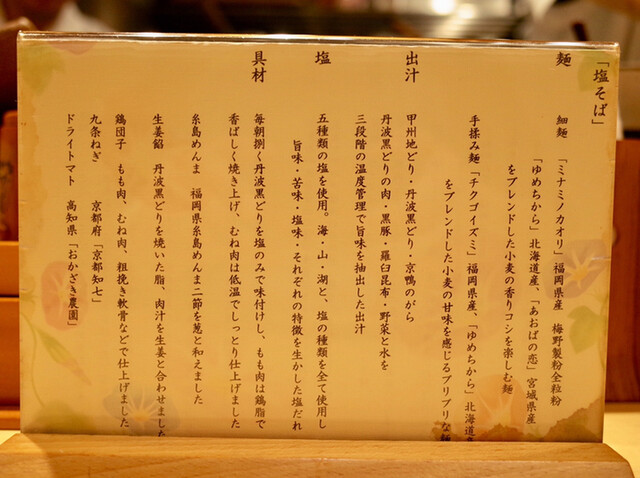 「塩そば」
麺
細麺　「ミナミノカオリ」福岡県産　梅野製粉全粒粉
「ゆめちから」北海道産、「あおばの恋」宮城県産
をブレンドした小麦の香りコシを楽しむ麺
手揉み麺「チクゴイズミ」福岡県産、「ゆめちから」北海道産
をブレンドした小麦の甘味を感じるプリプリな麺
出汁
甲州地どり・丹波黒どり・京鴨のがら
丹波黒どりの肉・黒豚・羅臼昆布・野菜と水を
三段階の温度管理で旨味を抽出した出汁
塩
五種類の塩を使用。海・山・湖と、塩の種類を全て使用し
旨味・苦味・塩味・それぞれの特徴を生かした塩だれ
具材
毎朝捌く丹波黒どりを塩のみで味付けし、もも肉は鶏脂で
香ばしく焼き上げ、むね肉は低温でしっとり仕上げました
糸島めんま　福岡県糸島めんま二節を葱と和えました
生姜餡　丹波黒どりを焼いた脂、肉汁を生姜と合わせました
鶏団子　もも肉、むね肉、粗挽き軟骨などで仕上げました
九条ねぎ　京都府「京都知七」
ドライトマト　高知県「おかざき農園」